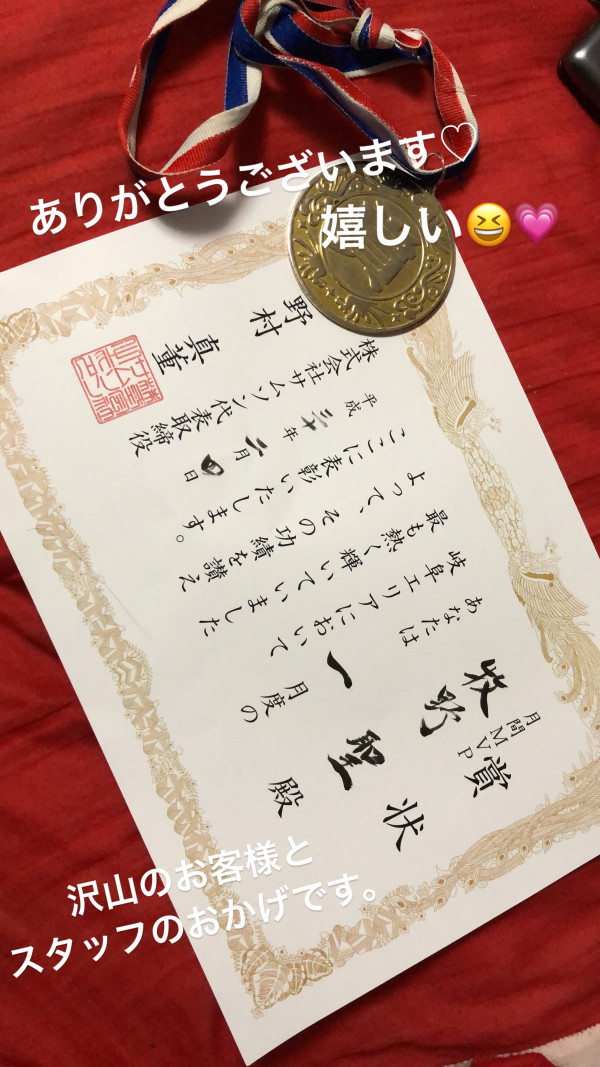 ありがとうございます♡
嬉しい😆💗
賞状
月間MVP
牧野 聖 殿
あなたは 一 月度の
岐阜エリアにおいて
最も熱く輝いていました
よって、その功績を讃え
ここに表彰いたします。
平成 三十年 二月 四日
株式会社サムソン代表取締役
野村
沢山のお客様と
スタッフのおかげです。